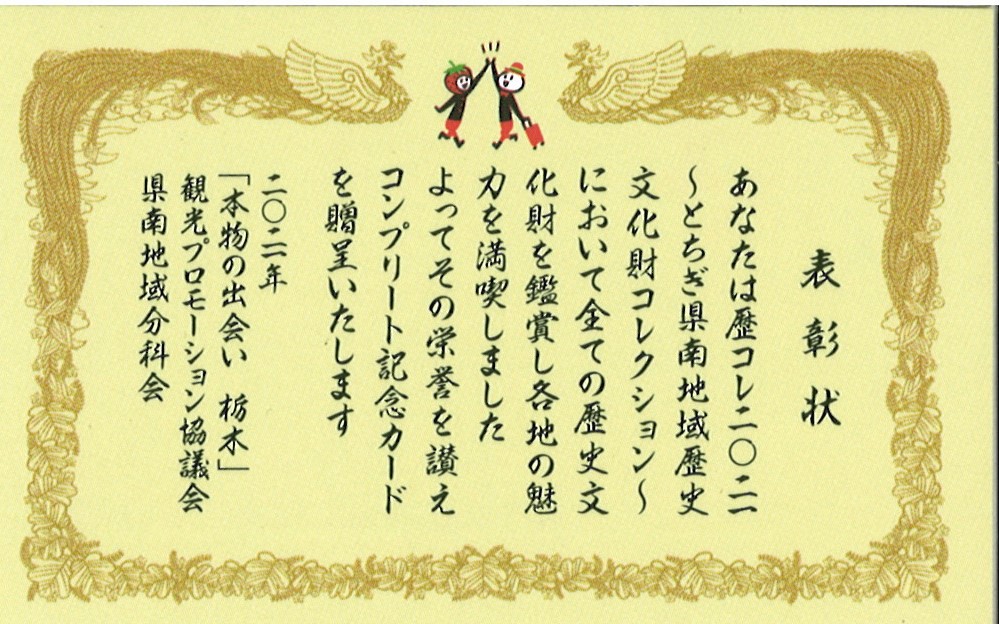 表彰状
あなたは歴コレ二〇二一
～とちぎ県南地域歴史
文化財コレクション～
において全ての歴史文
化財を鑑賞し各地の魅
力を満喫しました
よってその栄誉を讃え
コンプリート記念カード
を贈呈いたします
二〇二一年
「本物の出会い　栃木」
観光プロモーション協議会
県南地域分科会